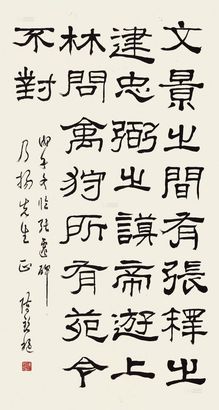 文景之間有張釋之
建忠弼之謨帝遊上
林問禽狩所有苑令
不對
戊午冬臨張遷碑
乃揚先生正